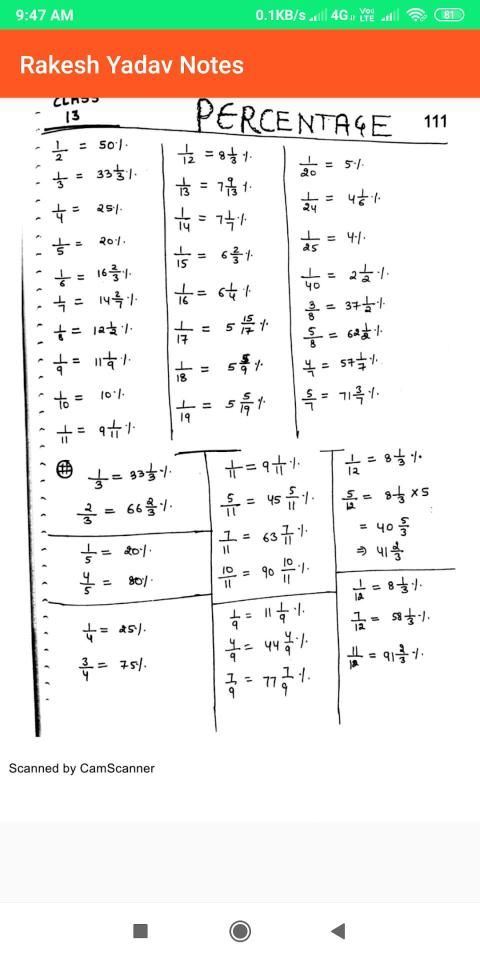 9:47 AM
0.1KB/s 4G Vo) LTE 81
Rakesh Yadav Notes
CLASS
13
PERCENTAGE
111
1/2 = 50%
1/3 = 33 1/3 %
1/4 = 25%
1/5 = 20%
1/6 = 16 2/3 %
1/7 = 14 2/7 %
1/8 = 12 1/2 %
1/9 = 11 1/9 %
1/10 = 10%
1/11 = 9 1/11 %
1/12 = 8 1/3 %
1/13 = 7 9/13 %
1/14 = 7 1/7 %
1/15 = 6 2/3 %
1/16 = 6 1/4 %
1/17 = 5 15/17 %
1/18 = 5 5/9 %
1/19 = 5 5/19 %
1/20 = 5%
1/24 = 4 1/6 %
1/25 = 4%
1/40 = 2 1/2 %
3/8 = 37 1/2 %
5/8 = 62 1/2 %
4/7 = 57 1/7 %
5/7 = 71 3/7 %
1/3 = 33 1/3 %
2/3 = 66 2/3 %
1/5 = 20%
4/5 = 80%
1/4 = 25%
3/4 = 75%
1/11 = 9 1/11 %
5/11 = 45 5/11 %
7/11 = 63 7/11 %
10/11 = 90 10/11 %
1/9 = 11 1/9 %
4/9 = 44 4/9 %
7/9 = 77 7/9 %
1/12 = 8 1/3 %
5/12 = 8 1/3 × 5
= 40 5/3
⇒ 41 2/3
1/12 = 8 1/3 %
7/12 = 58 1/3 %
11/12 = 91 2/3 %
Scanned by CamScanner